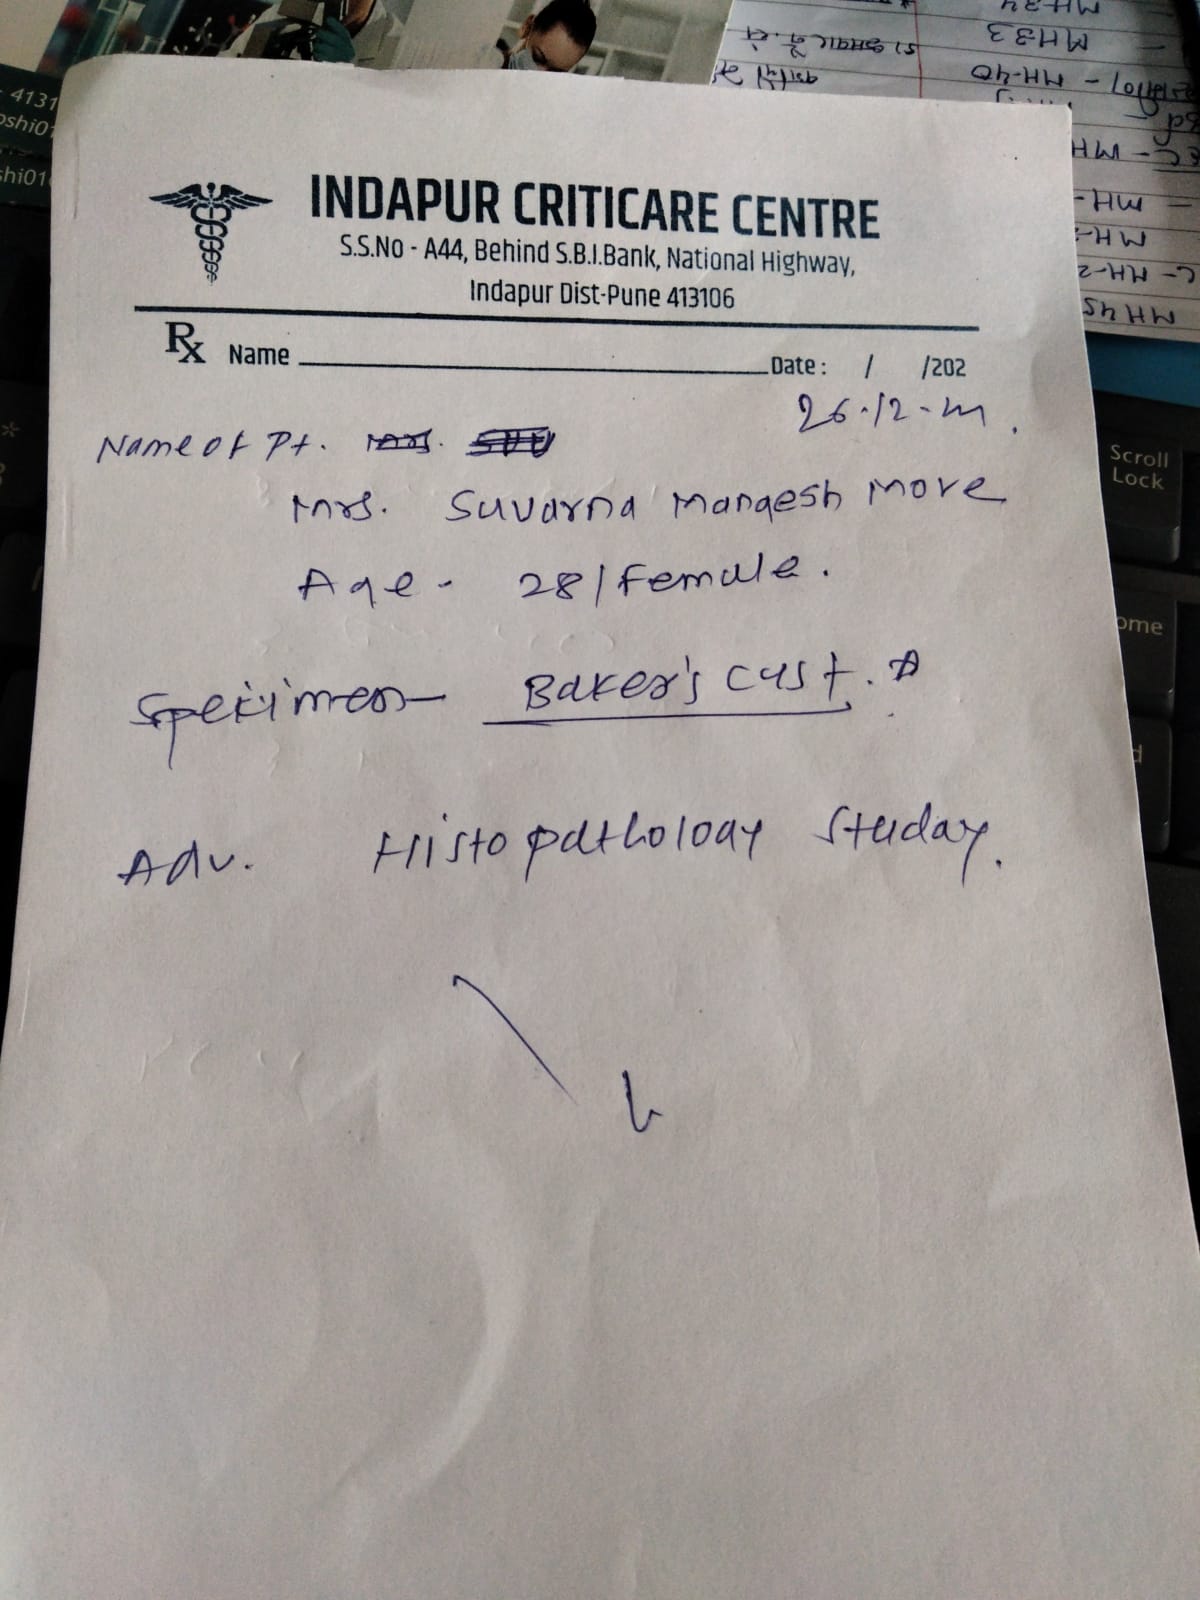 INDAPUR CRITICARE CENTRE
S.S.No - A44, Behind S.B.I.Bank, National Highway,
Indapur Dist-Pune 413106
Rx Name Date : / /202
26.12-
Name of Pt. Mrs.
Mrs. Suvarna Mangesh More
Age - 28/Female.
Specimen - Baker's cyst.
Adv. Histopathology Studay.
4131
oshi01
shi01
MH34
MH33
MH-40
MH
MH-
MH-2
MH45
Scroll
Lock
ome
d